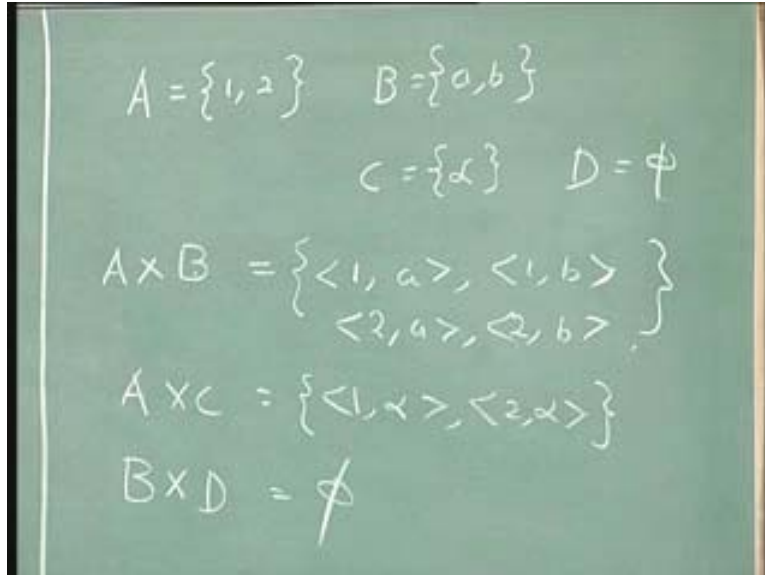 A = {1, 2} B = {a, b}
C = {α} D = φ
A × B = {<1, a>, <1, b>
<2, a>, <2, b>}
A × C = {<1, α>, <2, α>}
B × D = φ